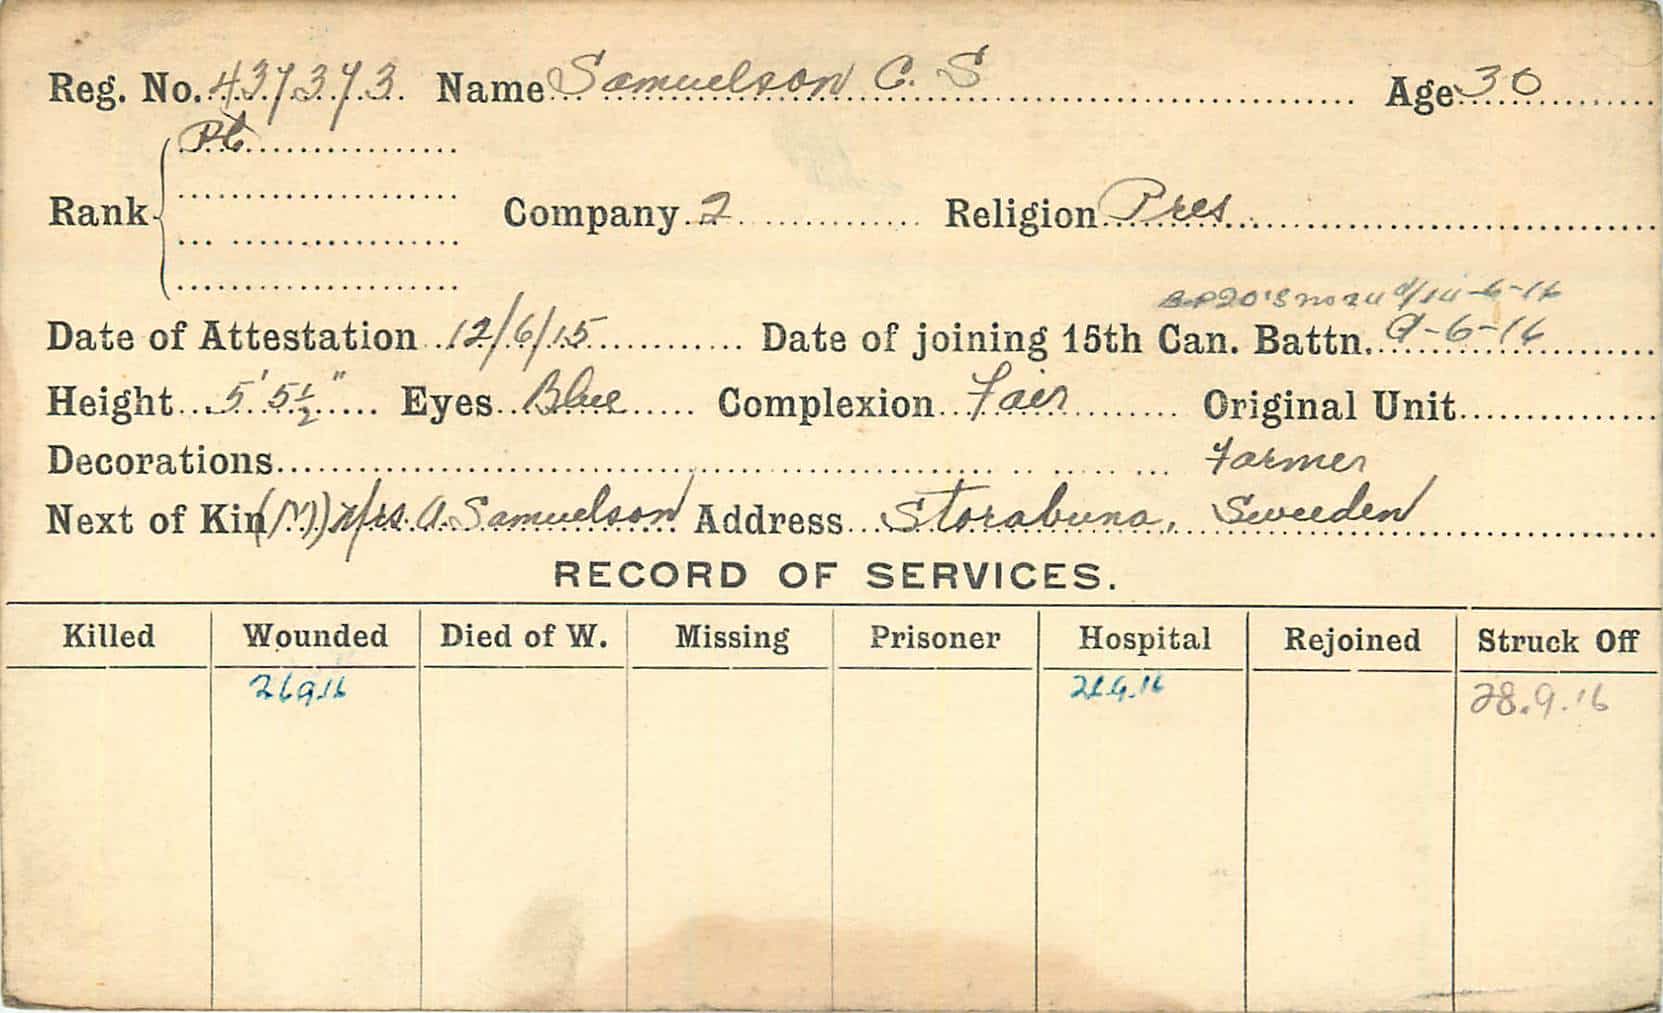 Reg. No. 437373 Name Samuelson C. S Age 30
Pte
Rank Company 2 Religion Pres
14-6-16
Date of Attestation 12/6/15 Date of joining 15th Can. Battn. 9-6-16
Height 5' 5½" Eyes Blue Complexion Fair Original Unit
Decorations Farmer
Next of Kin (M) Mrs. A. Samuelson Address Storabuna, Sweeden
RECORD OF SERVICES.
Killed Wounded Died of W. Missing Prisoner Hospital Rejoined Struck Off
26.9.16 26.9.16 28.9.16